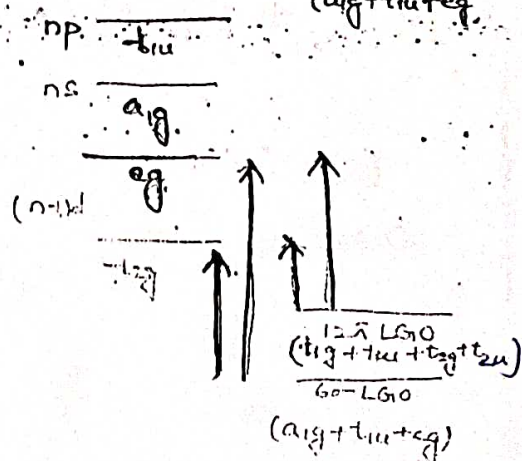 (a1g+t1u+eg
np
t1u
ns
a1g
eg
(n-1)d
t2g
12π LGO
(t1g+t1u+t2g+t2u)
6σ-LGO
(a1g+t1u+eg)